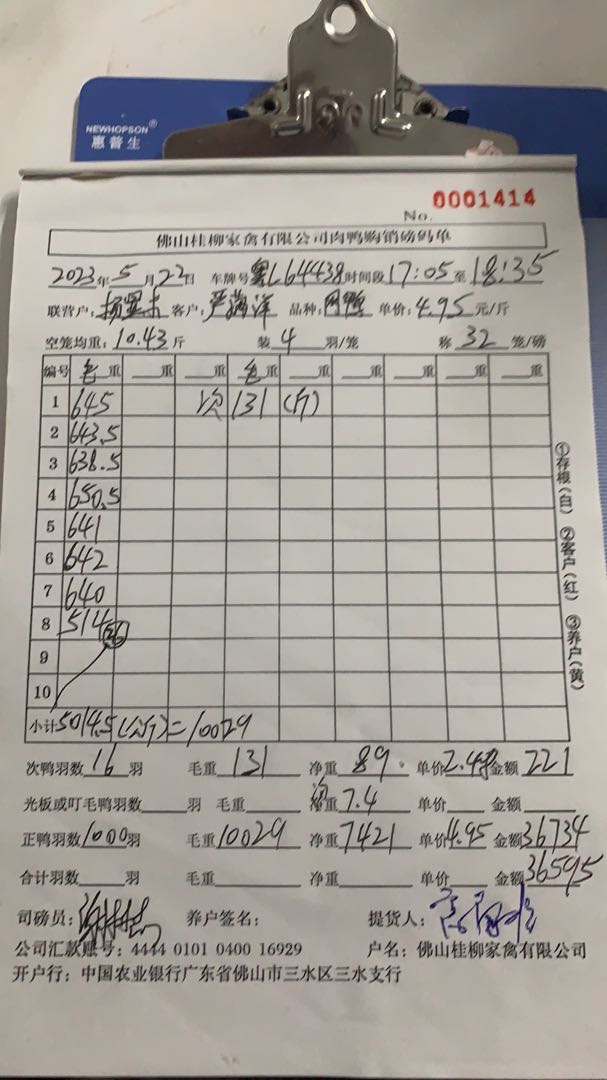 NEWHOPSON®
惠普生
No. 0001414
佛山桂柳家禽有限公司肉鸭购销磅码单
2023年5月22日 车牌号粤L64438时间段17:05至18:35
联营户: 客户:严海洋 品种: 单价:4.95元/斤
空笼均重:10.43斤 装4羽/笼 称32笼/磅
编号 毛重 重 重 毛重 重 重 重 重
1 645 次 131 (斤)
2 643.5
3 638.5
4 650.5
5 641
6 642
7 640
8 514 26
9
10
小计5014.5(公斤)=10029
①存根(白) ②客户(红) ③养户(黄)
次鸭羽数16羽 毛重131 净重89 单价2.48金额221
光板或叮毛鸭羽数 羽 毛重 净重7.4 单价 金额
正鸭羽数1000羽 毛重10029 净重7421 单价4.95金额36734
合计羽数 羽 毛重 净重 单价 金额36595
司磅员: 养户签名: 提货人:
公司汇款账号:4444 0101 0400 16929 户名:佛山桂柳家禽有限公司
开户行:中国农业银行广东省佛山市三水区三水支行